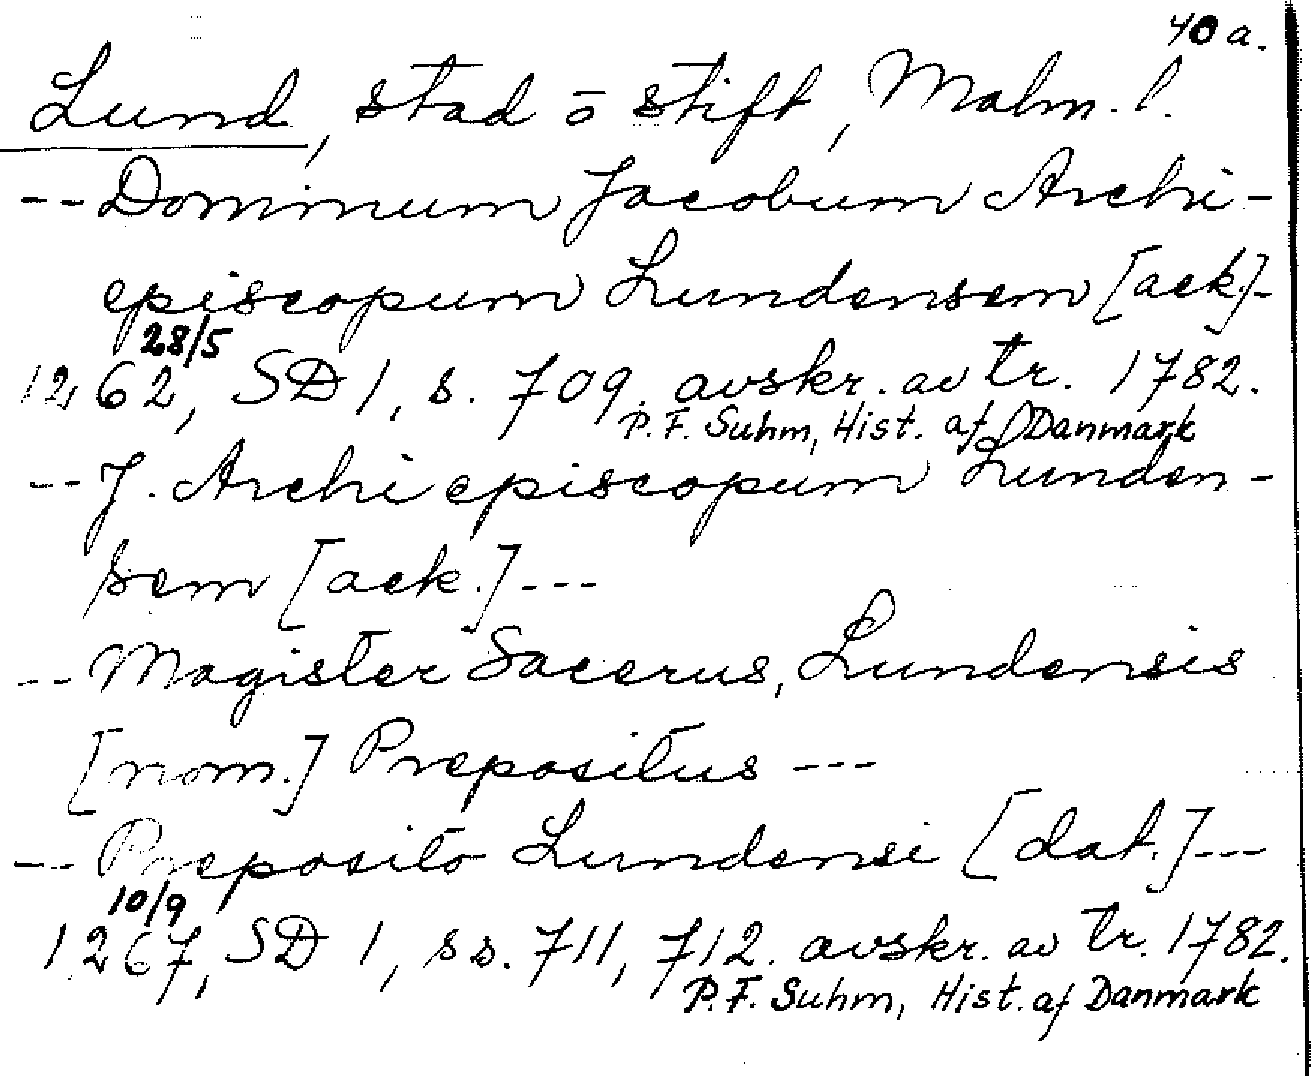 40 a.
Lund, stad o stift, Malm. l.
-- Dominum Jacobum Archi-
episcopum Lundensem [ack.]-
28/5
1262, SD 1, s. 709. avskr. av tr. 1782.
P. F. Suhm, Hist. af Danmark
-- J. Archiepiscopum Lunden-
sem [ack.] ---
-- Magister Sacerus, Lundensis
[nom.] Prepositus ---
-- Preposito Lundensi [dat.] ---
10/9
1267, SD 1, ss. 711, 712. avskr. av tr. 1782.
P. F. Suhm, Hist. af Danmark